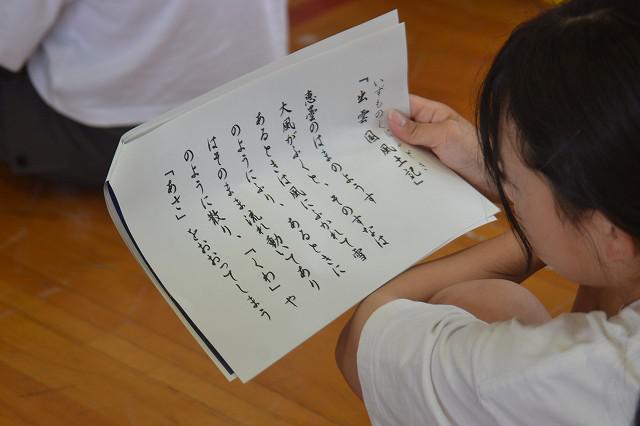 いずものくに
「出雲国風土記」
恵曇のはまのようす
大風がふくと、そのすなは
あるときは風にふかれて雪
のようにふり、あるときに
はそのまま流れ動いてあり
のように散り、「くわ」や
「あさ」をおおってしまう